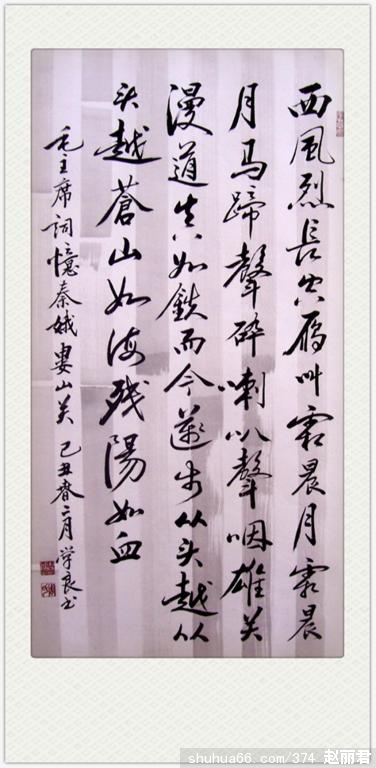 西風烈長空雁叫霜晨月霜晨
月马蹄聲碎喇叭聲咽雄关
漫道真如鉄而今邁步从头越从
头越蒼山如海残陽如血
毛主席詞憶秦娥婁山关 己丑春二月学良书
shuhua66.com/374 赵丽君